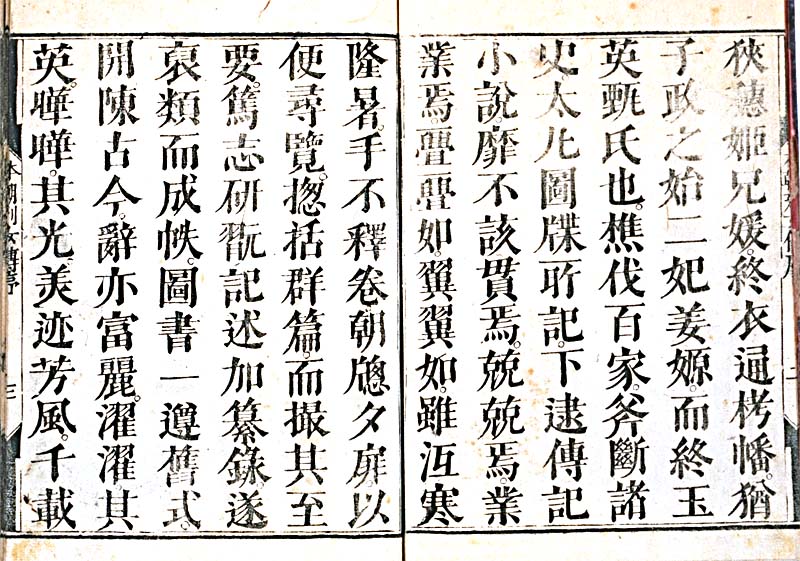 狹穗姬兄媛。終衣通栲幡。猶
子政之始二妃姜嫄。而終玉
英甄氏也。樵伐百家。斧斷諸
史太凢圖牒所記。下逮傳記
小說。靡不該貫焉。兢兢焉。業
業焉亹亹如。翼翼如。雖沍寒
隆暑。手不釋卷朝牕夕扉以
便尋覽。揔括群篇。而撮其至
要。篤志研翫記述加纂錄遂
裒類而成帙。圖書一遵舊式。
開陳古今。辭亦富麗。濯濯其
英。曄曄。其光。美迹芳風。千載
本朝列女傳序 三